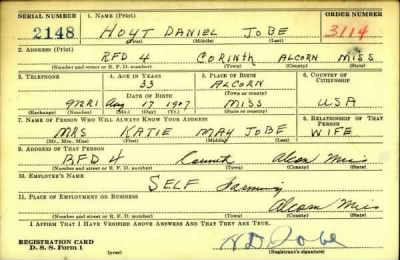 SERIAL NUMBER 1. NAME (Print) ORDER NUMBER
2148 HOYT DANIEL JOBE 3114
(First) (Middle) (Last)
2. ADDRESS (Print)
RFD 4 CORINTH ALCORN MISS
(Number and street or R. F. D. number) (Town) (County) (State)
3. TELEPHONE 4. AGE IN YEARS 5. PLACE OF BIRTH 6. COUNTRY OF CITIZENSHIP
33 ALCORN
DATE OF BIRTH (Town or county)
972R1 Aug 17 1907 MISS USA
(Mo.) (Day) (Yr.) (State or country)
7. NAME OF PERSON WHO WILL ALWAYS KNOW YOUR ADDRESS 8. RELATIONSHIP OF THAT PERSON
MRS KATIE MAY JOBE WIFE
(Mr., Mrs., Miss) (First) (Middle) (Last)
9. ADDRESS OF THAT PERSON
RFD 4 Corinth Alcorn Miss
(Number and street or R. F. D. number) (Town) (County) (State)
10. EMPLOYER'S NAME
SELF Farming
11. PLACE OF EMPLOYMENT OR BUSINESS
Alcorn Miss
(Number and street or R. F. D. number) (Town) (County) (State)
I AFFIRM THAT I HAVE VERIFIED ABOVE ANSWERS AND THAT THEY ARE TRUE.
REGISTRATION CARD
D. S. S. Form 1 H D Jobe